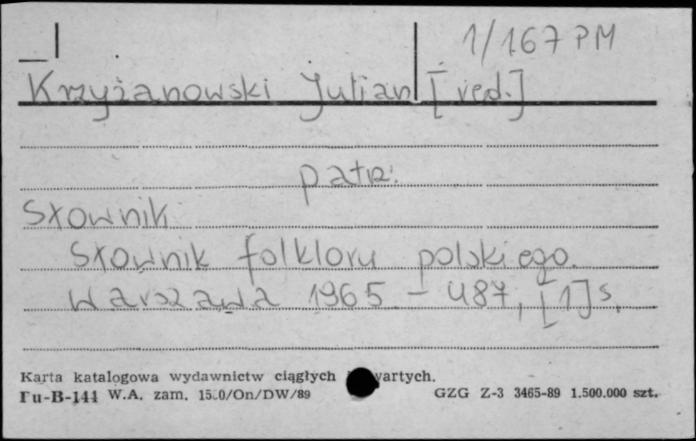 1/167 PM
Krzyżanowski Julian [red.]
patrz:
Słownik
Słownik folkloru polskiego.
Warszawa 1965 - 487, [1] s.
Karta katalogowa wydawnictw ciągłych
Pu-B-141 W.A. zam. /On/DW/89 GZG Z-3 3465-89 1.500.000 szt.